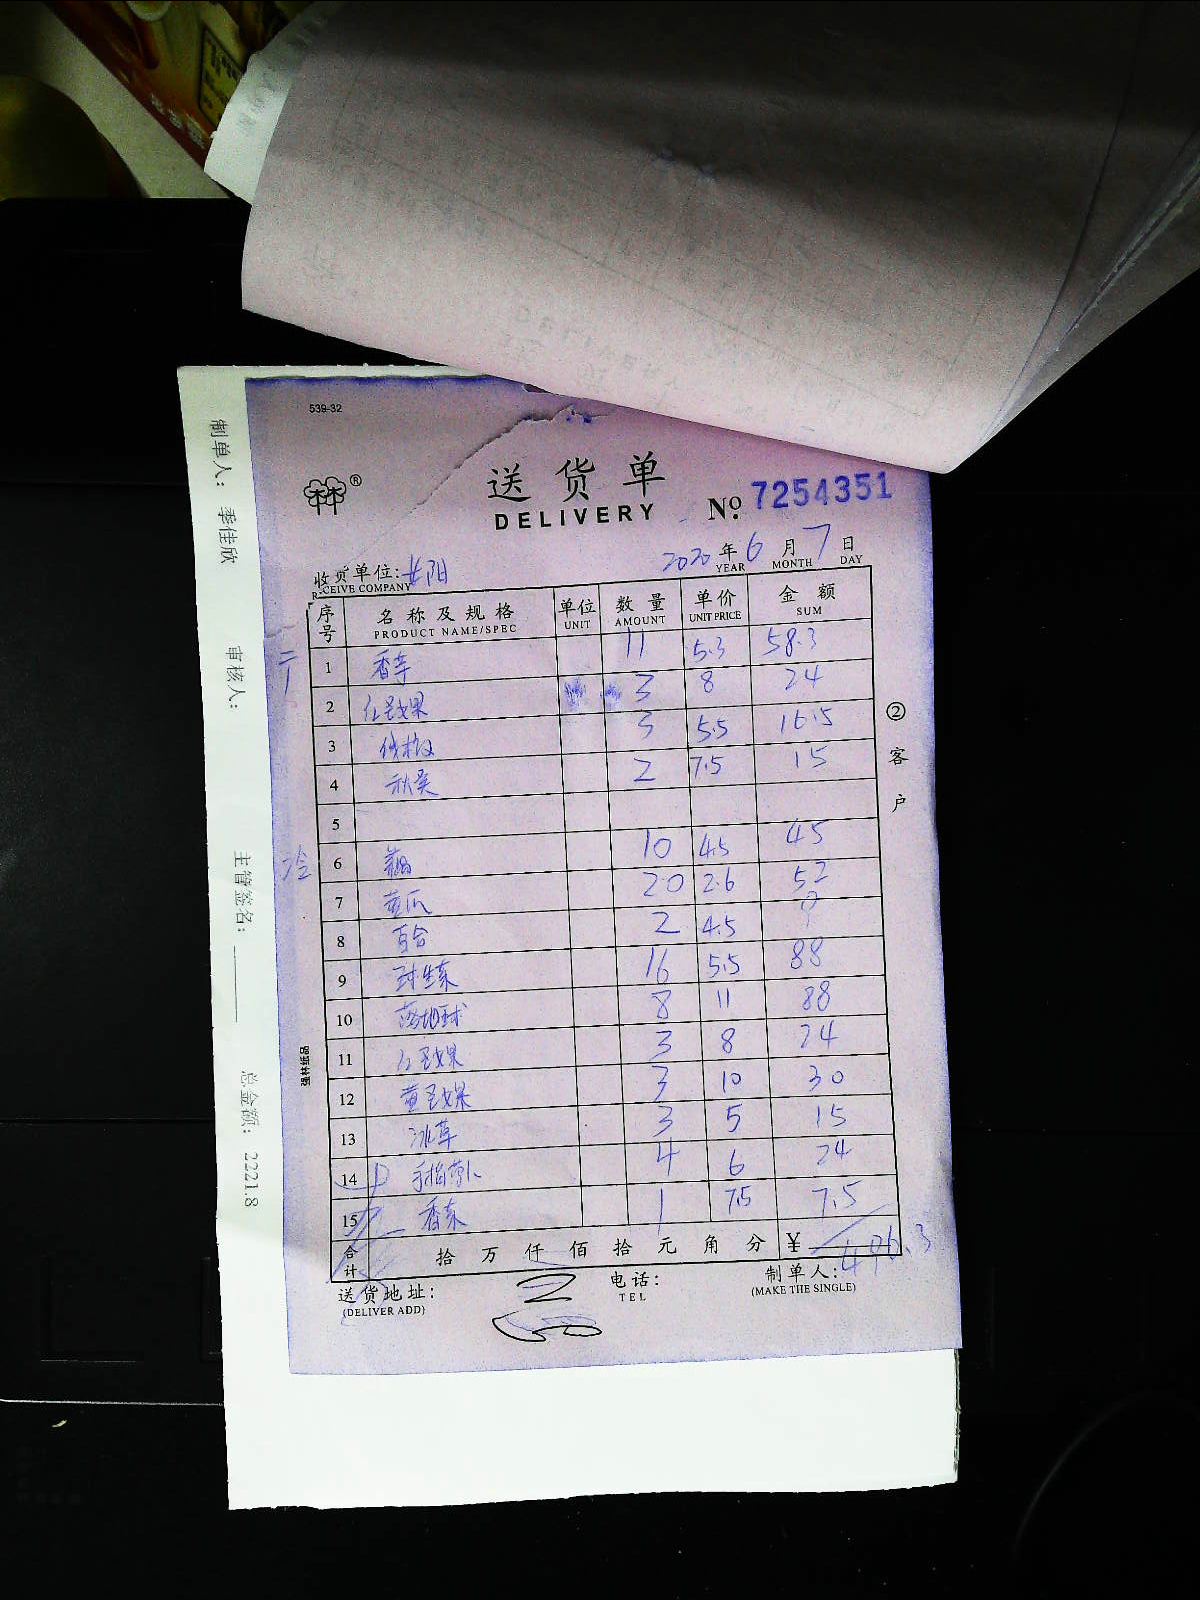 539-32
林®
送货单
DELIVERY
No. 7254351
2020年6月7日
YEAR MONTH DAY
收货单位:
RECEIVE COMPANY
序号 名称及规格 单位 数量 单价 金额
PRODUCT NAME/SPEC UNIT AMOUNT UNIT PRICE SUM
1 香芹 11 5.3 58.3
2 红圣女果 3 8 24
3 3 5.5 16.5
4 秋葵 2 7.5 15
5
6 10 4.5 45
7 黄瓜 20 2.6 52
8 百合 2 4.5 9
9 球生菜 16 5.5 88
10 落地球 8 11 88
11 红圣女果 3 8 24
12 黄圣女果 3 10 30
13 冰草 3 5 15
14 手指萝卜 4 6 24
15 香菜 1 7.5 7.5
合计 拾万仟佰拾元角分 ¥ 496.3
送货地址:
(DELIVER ADD)
电话:
TEL
制单人:
(MAKE THE SINGLE)
②客户
冷
强林纸品
制单人: 季佳欣
审核人:
主管签名:
总金额: 2221.8